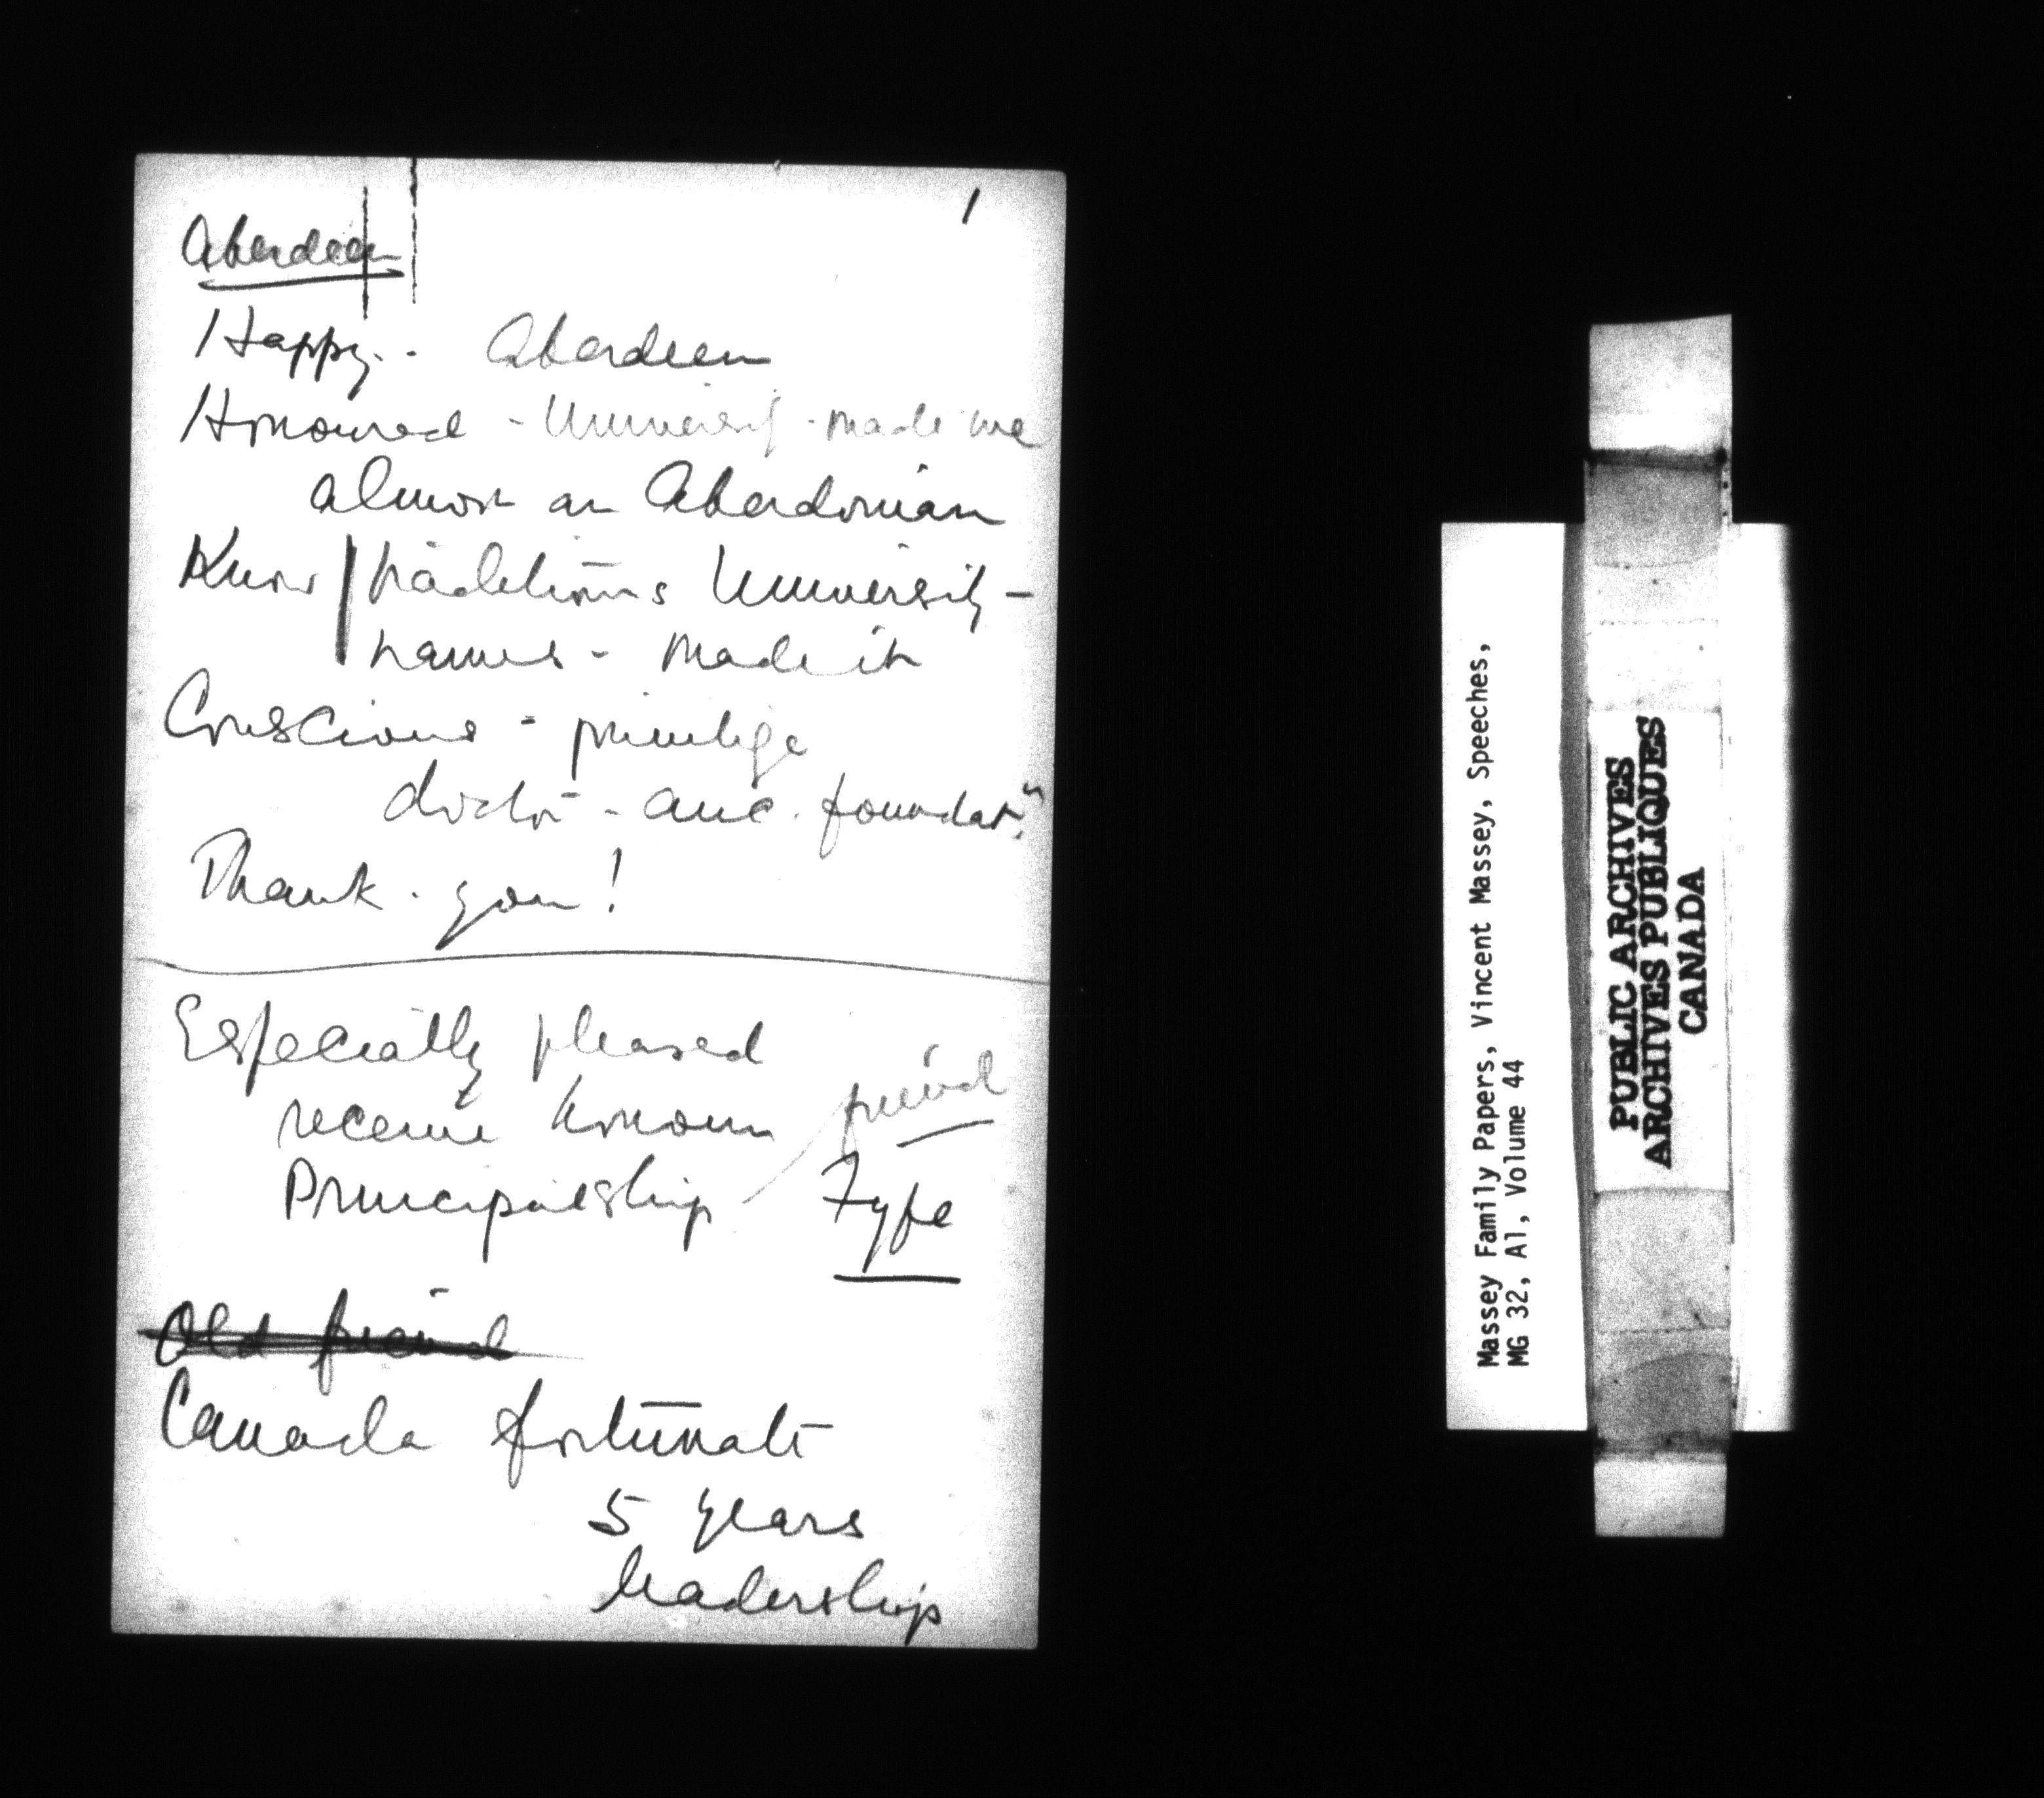 1
Aberdeen
Happy.. Aberdeen
Honoured - University - made me
almost an Aberdonian
Know | traditions University -
names - made it
Conscious - privilege
doctor - anc. foundatn.
Thank - you!
Especially pleased
receive honour friend
Principalship Fyfe
Old friend
Canada fortunate
5 years
leadership
Massey Family Papers, Vincent Massey, Speeches,
MG 32, A1, Volume 44
PUBLIC ARCHIVES
ARCHIVES PUBLIQUES
CANADA